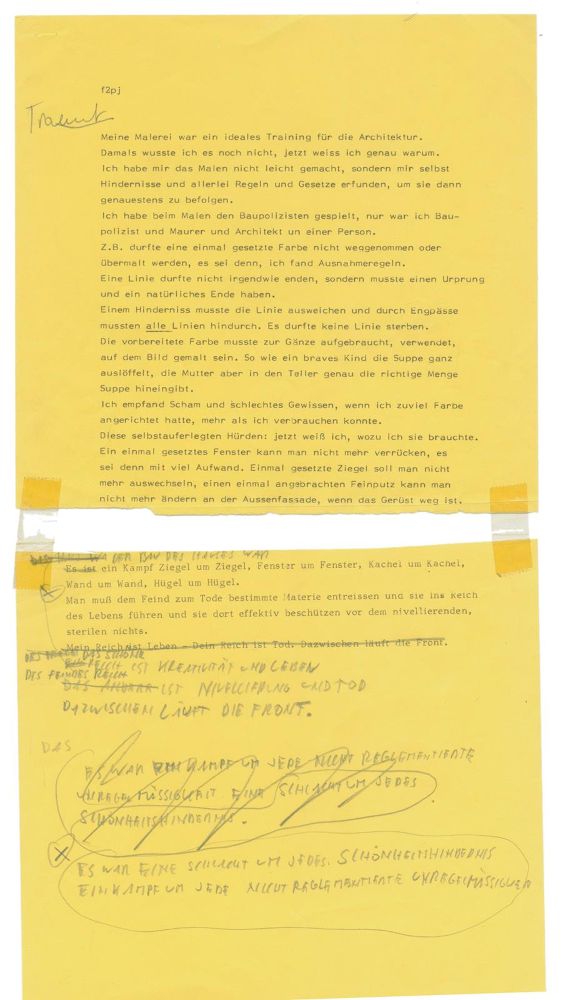 f2pj
Meine Malerei war ein ideales Training für die Architektur.
Damals wusste ich es noch nicht, jetzt weiss ich genau warum.
Ich habe mir das Malen nicht leicht gemacht, sondern mir selbst
Hindernisse und allerlei Regeln und Gesetze erfunden, um sie dann
genauestens zu befolgen.
Ich habe beim Malen den Baupolizisten gespielt, nur war ich Bau-
polizist und Maurer und Architekt un einer Person.
Z.B. durfte eine einmal gesetzte Farbe nicht weggenommen oder
übermalt werden, es sei denn, ich fand Ausnahmeregeln.
Eine Linie durfte nicht irgendwie enden, sondern musste einen Urprung
und ein natürliches Ende haben.
Einem Hinderniss musste die Linie ausweichen und durch Engpässe
mussten alle Linien hindurch. Es durfte keine Linie sterben.
Die vorbereitete Farbe musste zur Gänze aufgebraucht, verwendet,
auf dem Bild gemalt sein. So wie ein braves Kind die Suppe ganz
auslöffelt, die Mutter aber in den Teller genau die richtige Menge
Suppe hineingibt.
Ich empfand Scham und schlechtes Gewissen, wenn ich zuviel Farbe
angerichtet hatte, mehr als ich verbrauchen konnte.
Diese selbstauferlegten Hürden: jetzt weiß ich, wozu ich sie brauchte.
Ein einmal gesetztes Fenster kann man nicht mehr verrücken, es
sei denn mit viel Aufwand. Einmal gesetzte Ziegel soll man nicht
mehr auswechseln, einen einmal angebrachten Feinputz kann man
nicht mehr ändern an der Aussenfassade, wenn das Gerüst weg ist.
DER BAU DES HAUSES WAR
Es ist ein Kampf Ziegel um Ziegel, Fenster um Fenster, Kachel um Kachel,
Wand um Wand, Hügel um Hügel.
Man muß dem Feind zum Tode bestimmte Materie entreissen und sie ins Reich
des Lebens führen und sie dort effektiv beschützen vor dem nivellierenden,
sterilen nichts.
Mein Reich ist Leben - Dein Reich ist Tod. Dazwischen läuft die Front.
DAS SCHÖNE
REICH IST KREATIVITÄT UND LEBEN
DES FEINDES REICH
IST NIVELLIERUNG UND TOD
DAZWISCHEN LÄUFT DIE FRONT.
DAS
ES WAR EIN KAMPF UM JEDE NICHT REGLEMENTIERTE
UNREGELMÄSSIGKEIT EINE SCHLACHT UM JEDES
SCHÖNHEITSHINDERNIS.
ES WAR EINE SCHLACHT UM JEDES SCHÖNHEITSHINDERNIS
EIN KAMPF UM JEDE NICHT REGLEMENTIERTE UNREGELMÄSSIGKEIT